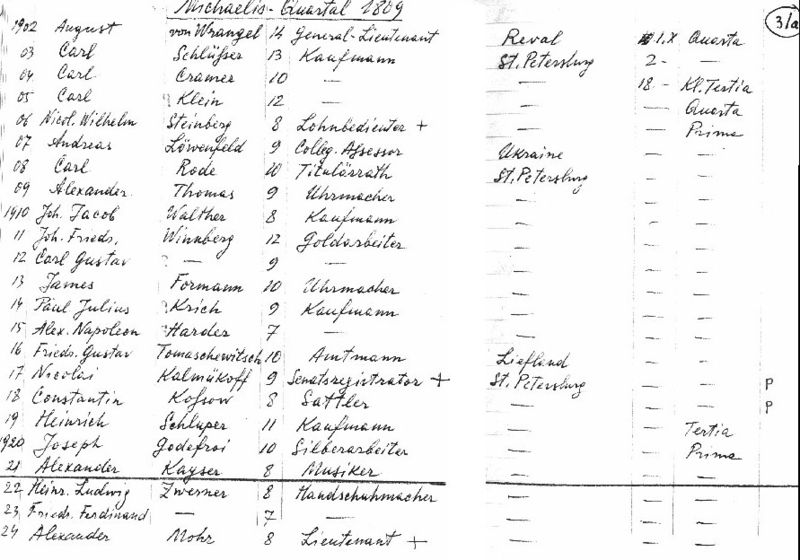 Michaelis-Quartal 1809 31a
1902 August von Wrangel 14 General-Lieutenant Reval 1.X Quarta
03 Carl Schlüsser 13 Kaufmann St. Petersburg 2- —
04 Carl Cramer 10 — — 18- Kl. Tertia
05 Carl Klein 12 — — — Quarta
06 Nicol. Wilhelm Steinberg 8 Lohnbedienter + — — Prima
07 Andreas Löwenfeld 9 Colleg. Assessor Ukraine — —
08 Carl Rode 10 Titulärrath St. Petersburg — —
09 Alexander Thomas 9 Uhrmacher — — —
1910 Joh. Jacob Walther 8 Kaufmann — — —
11 Joh. Friedr. Winnberg 12 Goldarbeiter — — —
12 Carl Gustav — 9 — — — —
13 James Formann 10 Uhrmacher — — —
14 Paul Julius Krich 9 Kaufmann — — —
15 Alex. Napoleon Harder 7 — — — —
16 Friedr. Gustav Tomaschewitsch 10 Amtmann Liefland — —
17 Nicolai Kalmükoff 9 Senatsregistrator + St. Petersburg — — P
18 Constantin Kossow 8 Sattler — — — P
19 Heinrich Schluper 11 Kaufmann — — Tertia
1920 Joseph Godefroi 10 Silberarbeiter — — Prima
21 Alexander Kayser 8 Musiker — — —
22 Heinr. Ludwig Zwerner 8 Handschuhmacher — — —
23 Friedr. Ferdinand — 7 — — — —
24 Alexander Mohr 8 Lieutenant + — — —